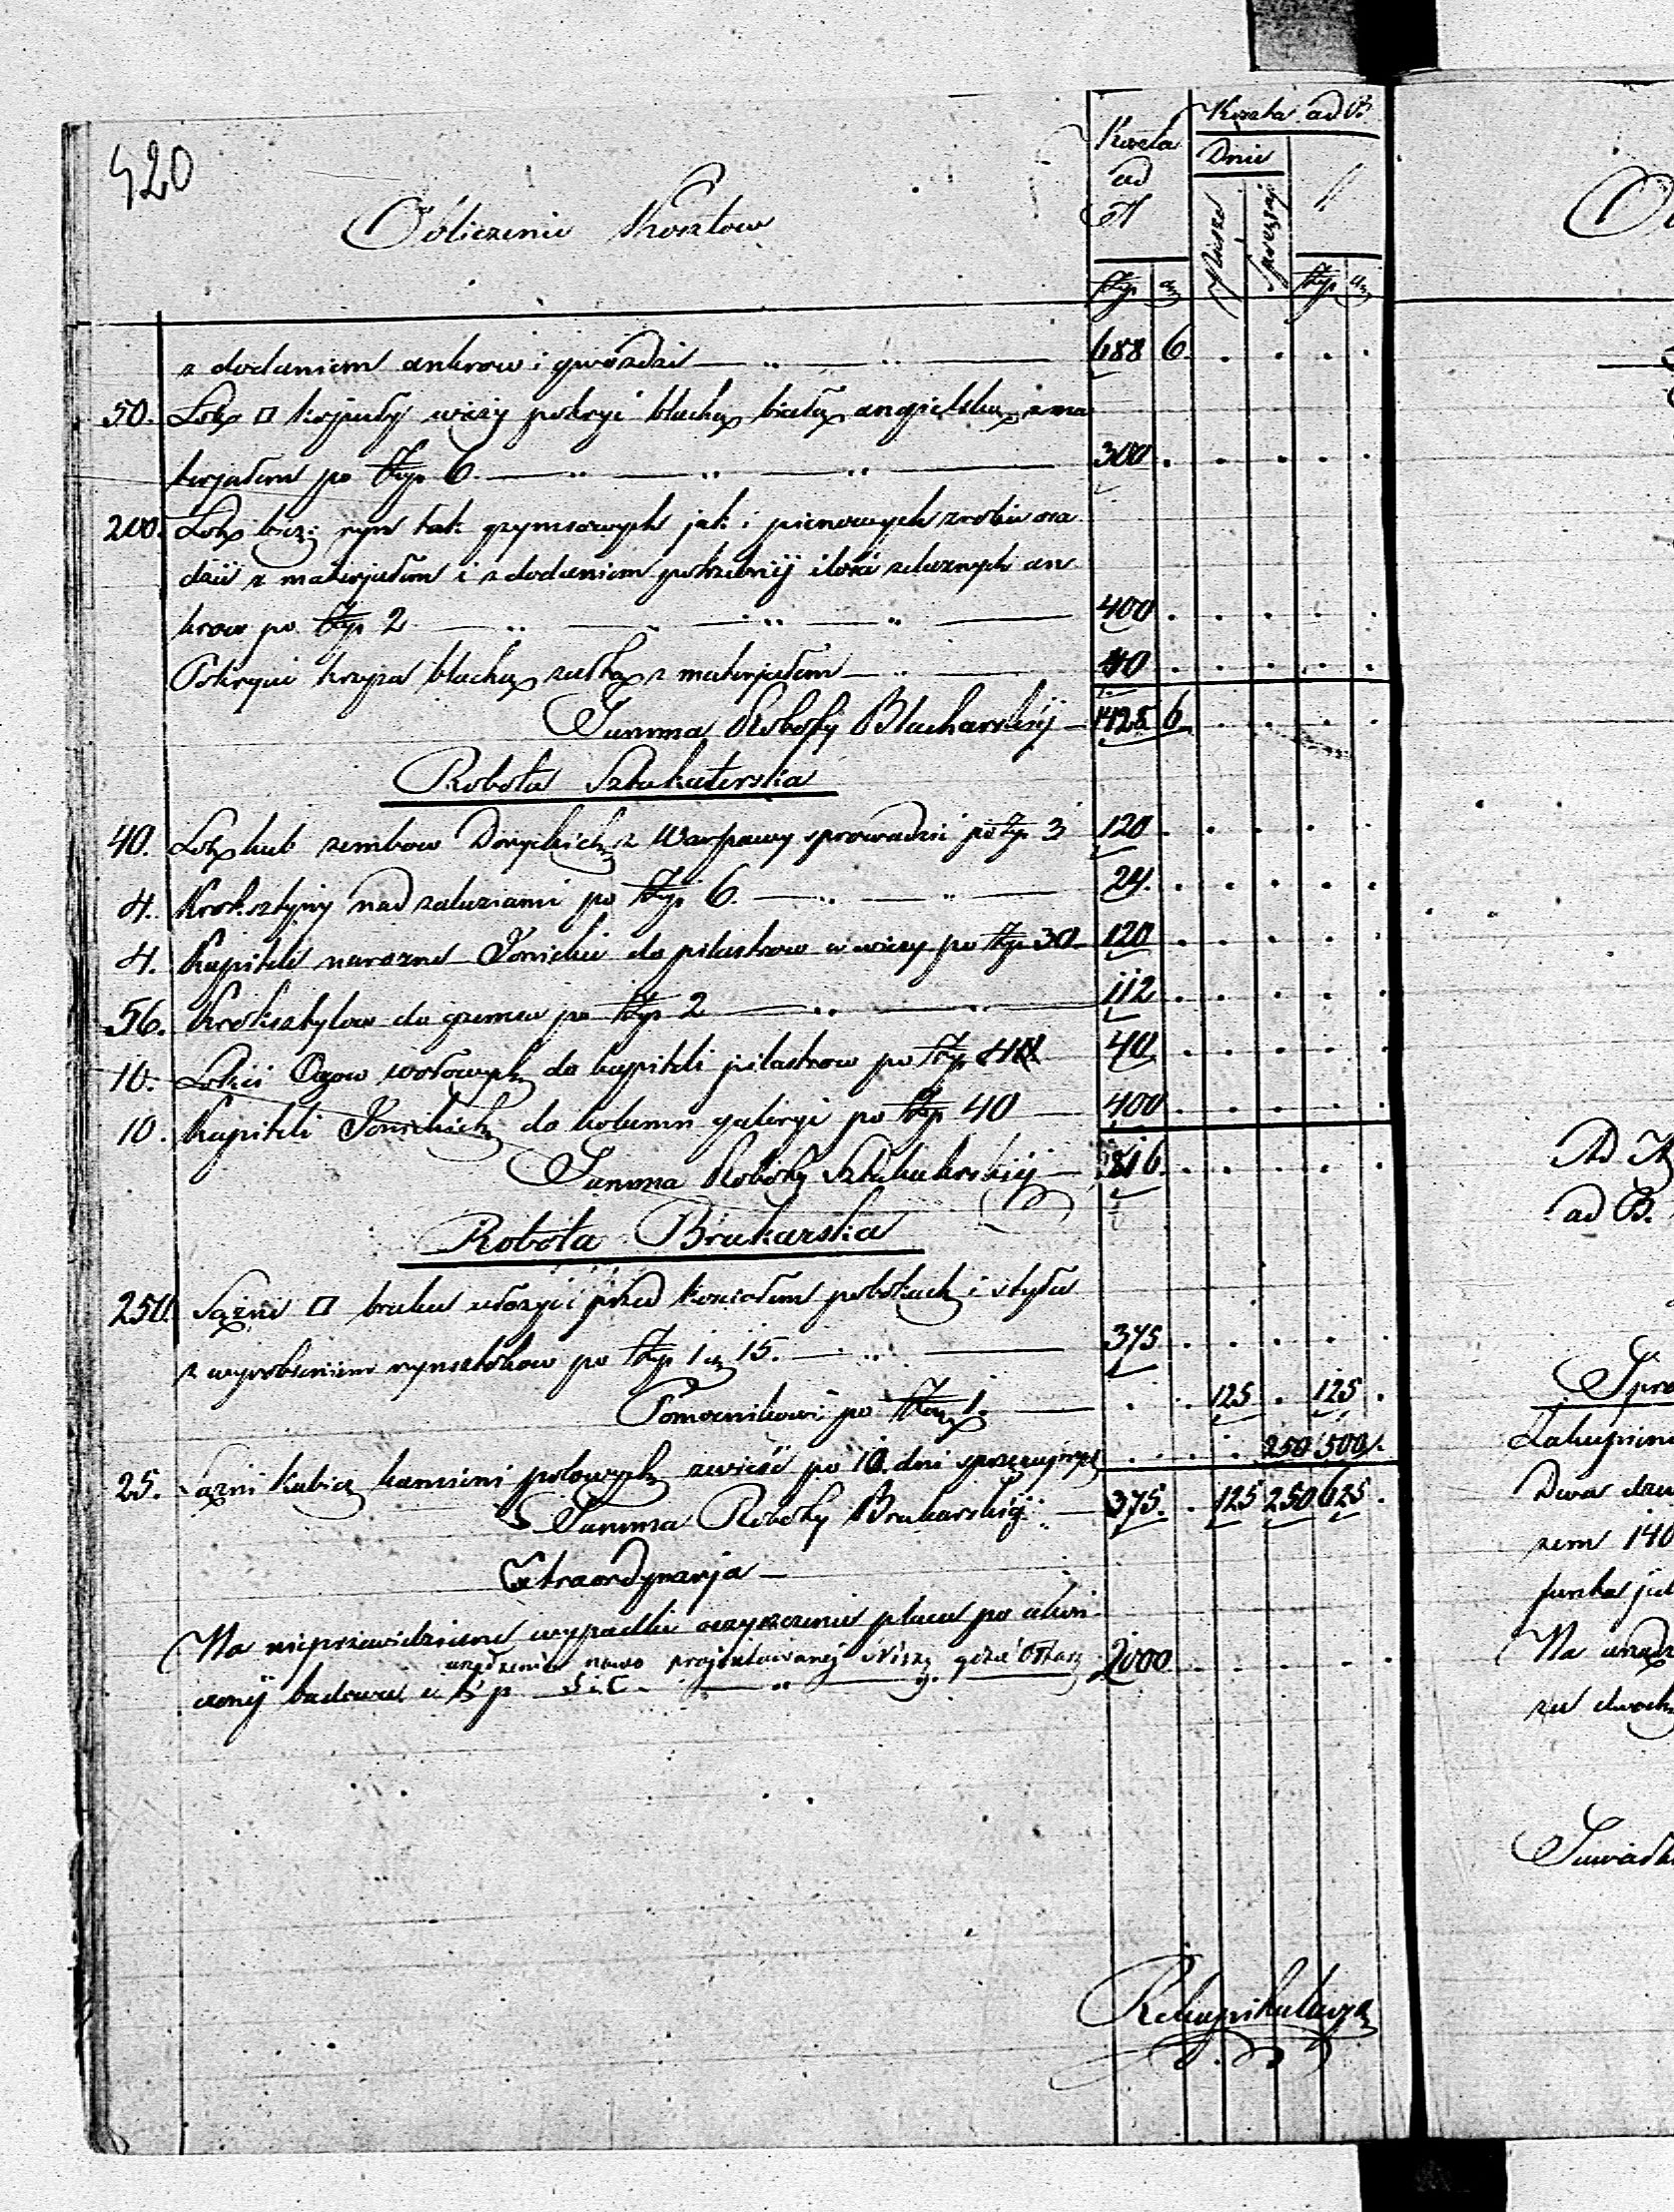 420
Obliczenie Kosztow
Koszta
ad
A
Koszta ad B.
Dnie
Piesze
sprzężaj
Złp gr
Złp gr
z dodaniem ankrow i gwozdzi 688 6
50. Łok □ kopuły wieży pokryć blachą białą angielską z ma
terjałem po Złp 6. 300
200. Łok bież: ryn tak gzymsowych jak i pionowych zrobić osa
dzić z materjałem i z dodaniem potrzebnej ilości żelaznych an
krow po Złp 2 400
Pokrycie krzyża blachą żółtą z materjałem 40
Summa Roboty Blacharskiej 1428 6
Robota Sztukaterska
40. Łok kub zembow Doryckich z Warszawy sprowadzić po Złp 3 120
4. Kroksztyny nad żaluziami po Złp 6. 24.
4. Kapiteli narożne Jonickie do pilastrow w wieży po Złp 30 120
56. Kroksztylow do gzemsu po Złp 2 112
10. Łokci Oczow wołowych do kapiteli pilastrow po Złp 4 40
10. Kapiteli Jonickich do kolumn galeryi po Złp 40 400
Summa Roboty Sztukaterskiej 816
Robota Brukarska
250. Sążni □ bruku ułożyć przed kościołem po bokach i z tyłu
z wyrobieniem rynsztokow po Złp 1 gr 15. 375
Pomocnikowi po Złp 1. 125 125
25. Sążni Kubicz kamieni polowych zwieść po 10. dni sprzężajnych 250 500
Summa Roboty Brukarskiej 375. 125 250 625
Extraordynarja
Na nieprzewidziane wypadki oczyszczenie placu po ukoń
urządzenie nowo projektowanej Niszy gdzie Ołtarz
czonej budowie i t p. 2000
Rekapitulacya
Ad A
ad B.
Zakupieni
Dwa
zem 140
funta
Na urządz